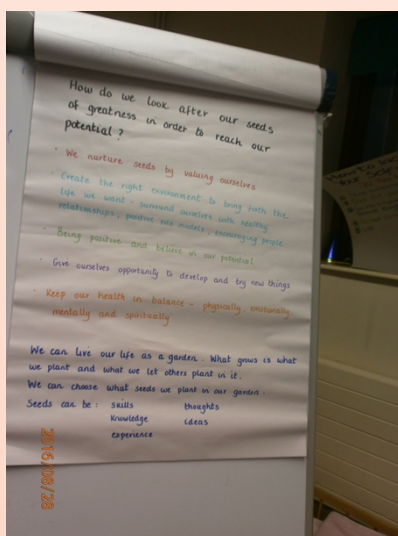 How do we look after our seeds
of greatness in order to reach our
potential?
· We nurture seeds by valuing ourselves
· Create the right environment to bring forth the
life we want - surround ourselves with healthy
relationships, positive role models, encouraging people.
· Being positive and believe in our potential
· Give ourselves opportunity to develop and try new things
· Keep our health in balance - physically, emotionally,
mentally and spiritually
We can live our life as a garden. What grows is what
we plant and what we let others plant in it.
We can choose what seeds we plant in our garden.
Seeds can be: skills thoughts
knowledge ideas
experience
2016/08/28